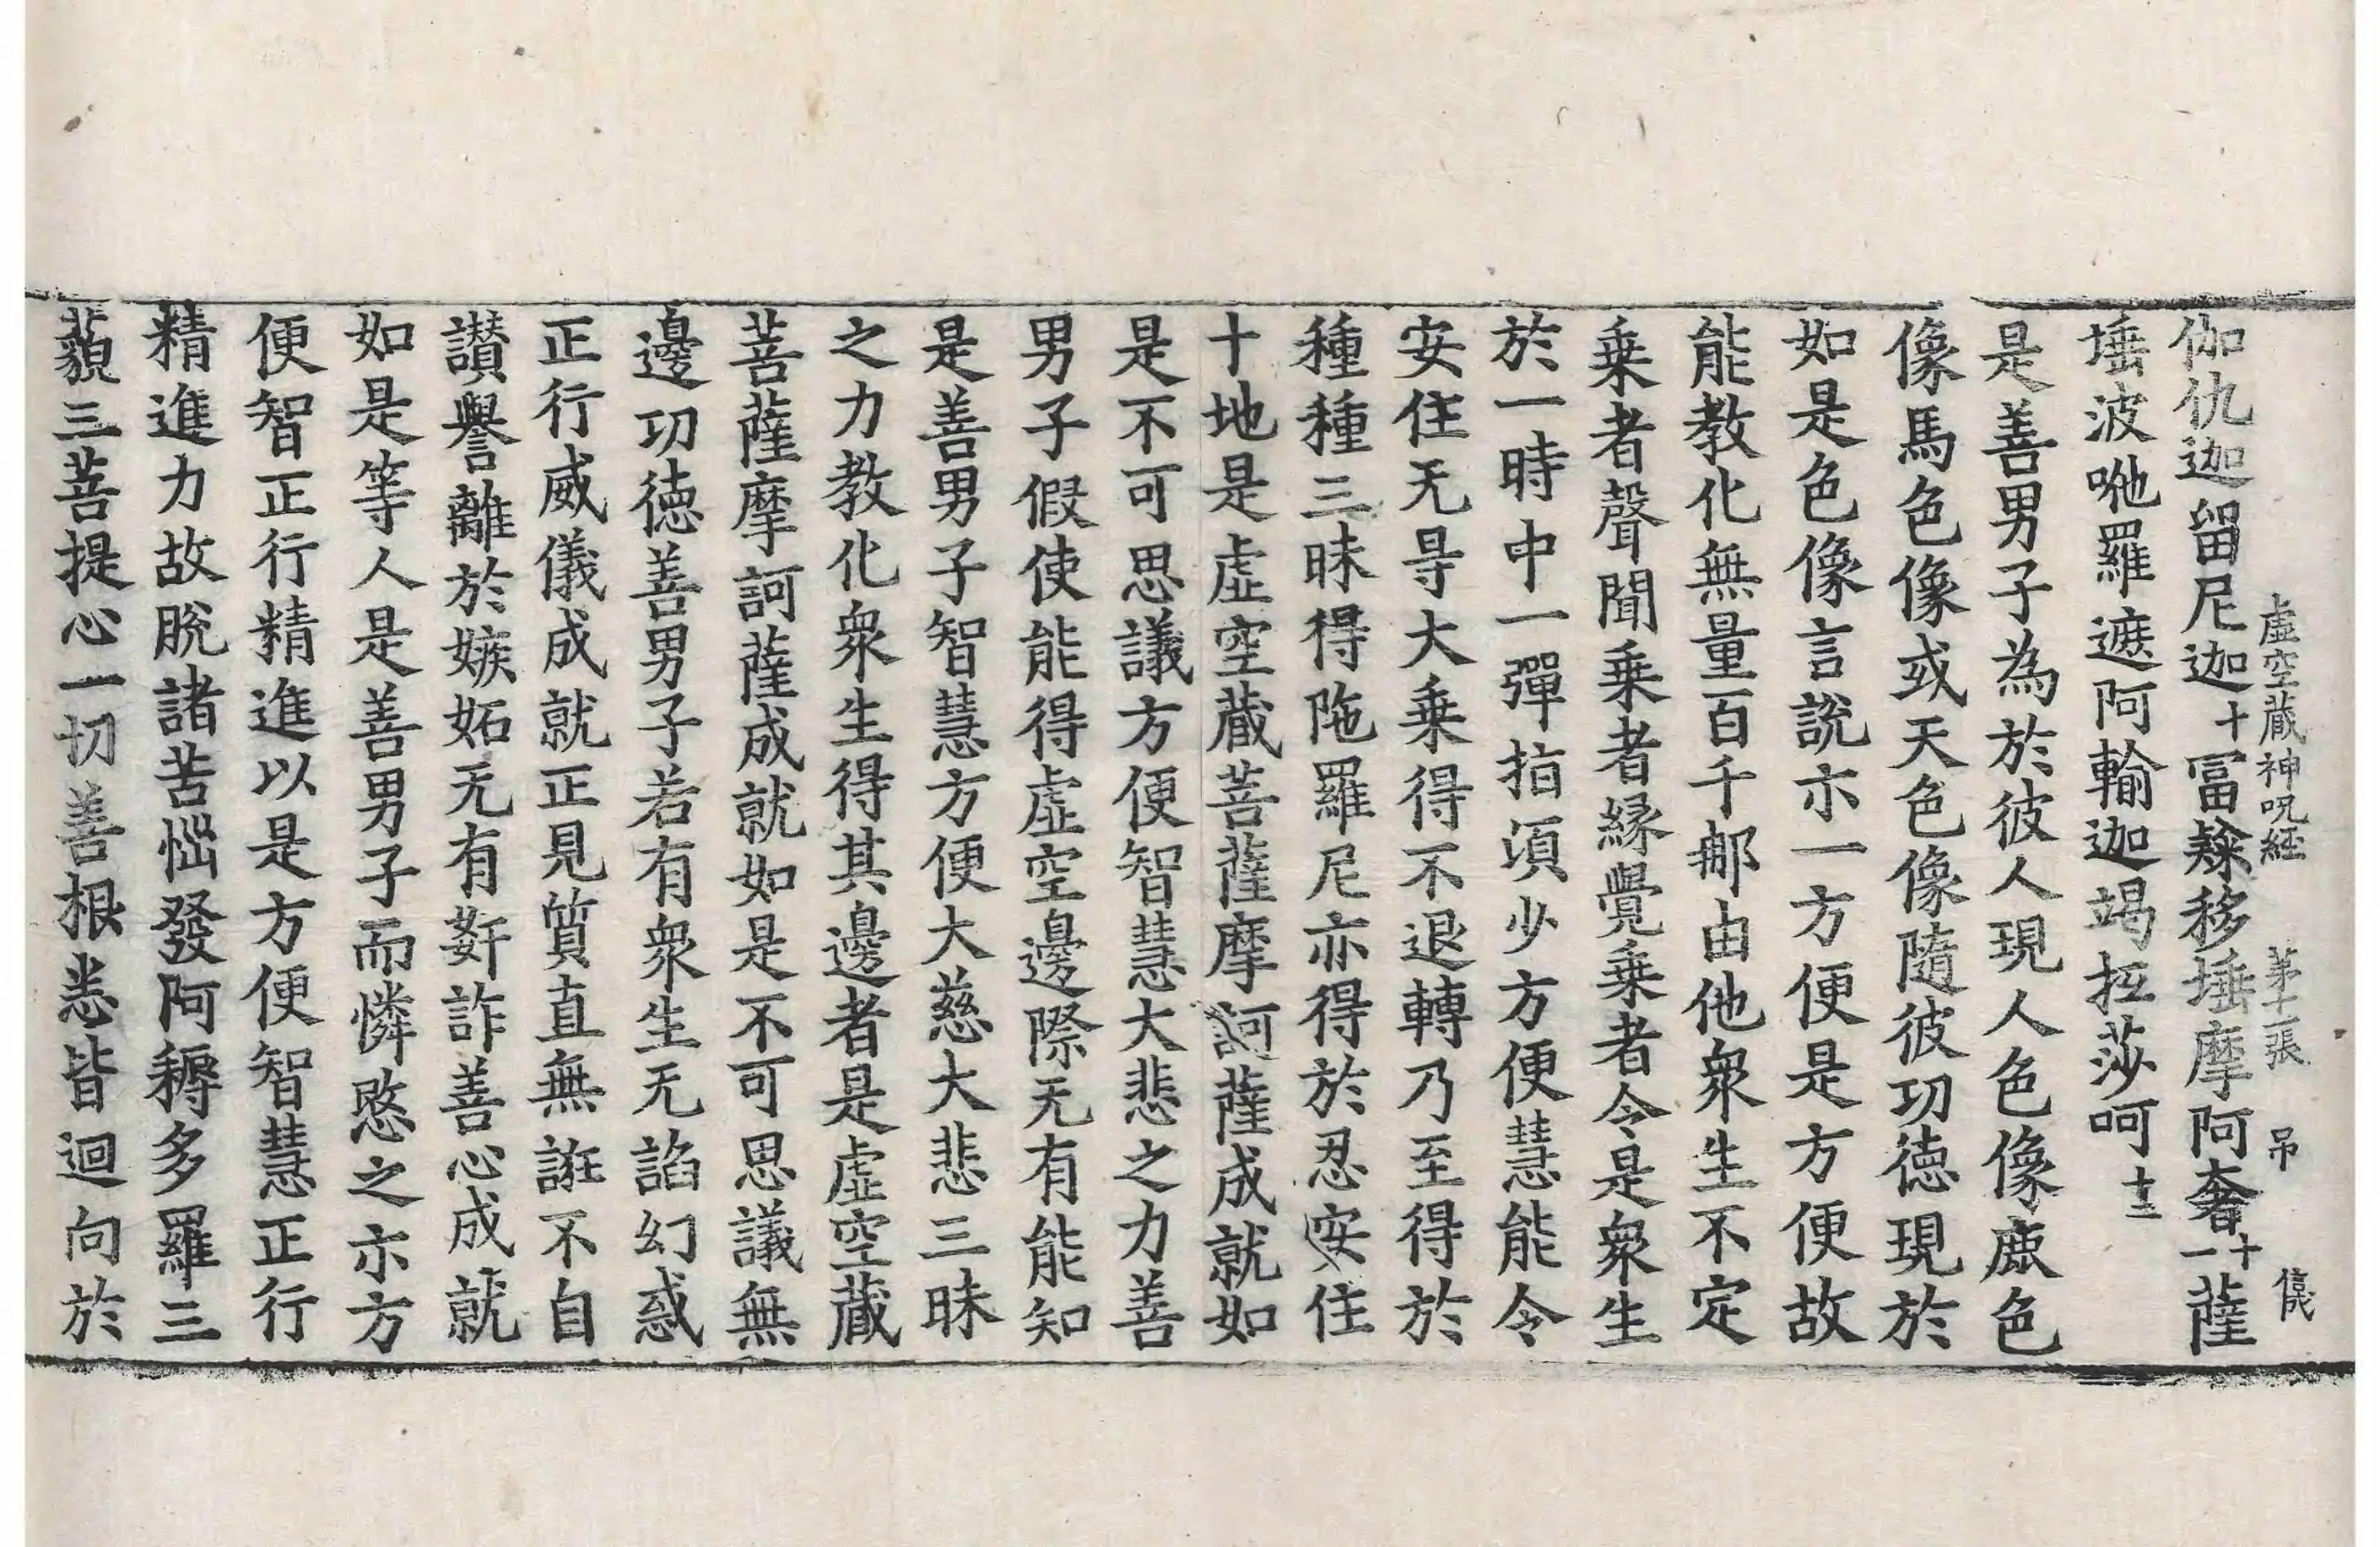 虛空藏神呪経 第十二張 吊
伽仇迦留尼迦十冨𣩠移埵摩阿奢十一薩
埵波哋羅遮阿輸迦竭抂莎呵十二
是善男子為於彼人現人色像鹿色
像馬色像或天色像隨彼功徳現於
如是色像言說亦一方便是方便故
能教化無量百千那由他衆生不定
乗者聲聞乗者縁覺乗者令是衆生
於一時中一彈指湏少方便慧能令
安住无㝵大乗得不退轉乃至得於
種種三昧得陁羅尼亦得於忍安住
十地是虛空蔵菩薩摩訶薩成就如
是不可思議方便智慧大悲之力善
男子假使能得虛空邊際无有能知
是善男子智慧方便大慈大悲三昧
之力教化衆生得其邊者是虛空蔵
菩薩摩訶薩成就如是不可思議無
邊功徳善男子若有衆生无諂幻惑
正行威儀成就正見質直無誑不自
讃譽離於嫉妬无有姧詐善心成就
如是等人是善男子而憐愍之亦方
便智正行精進以是方便智慧正行
精進力故脫諸苦惱發阿耨多羅三
藐三菩提心一切善根悉皆迴向於